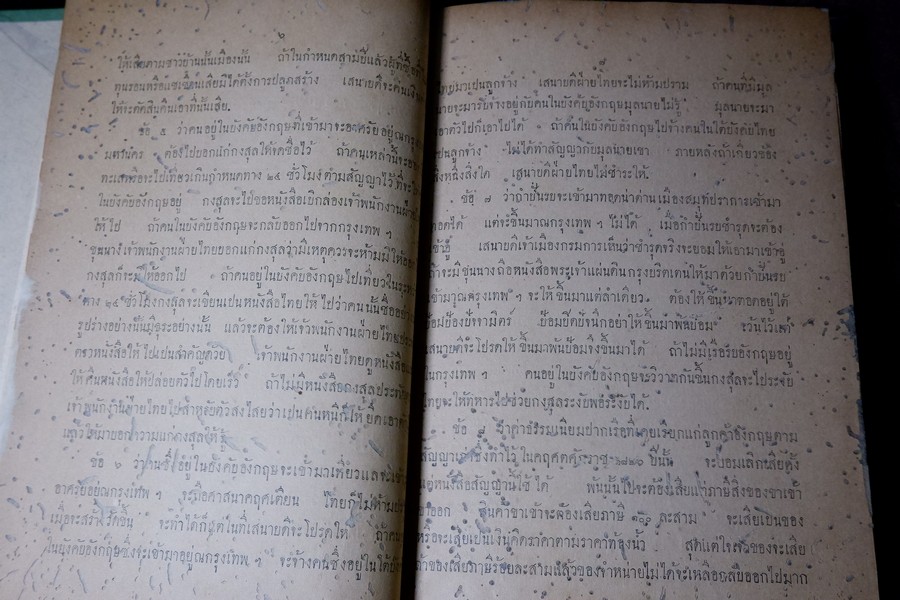 ๖
ให้เสียตามชาวบ้านนั้นเมืองนั้น ถ้าในกำหนดสามปีแล้วผู้ที่ซื้อที่
เสียมิได้ตั้งการปลูกสร้าง เสนาบดีจะคืนเงิน
ให้จะตัดสินคืนเอาที่นั้นเสีย.
ข้อ ๕ ว่าคนอยู่ในบังคับอังกฤษที่เข้ามาจะอาศรัยอยู่ณกรุง
ต้องไปบอกแก่กงสุลให้จดชื่อไว้ ถ้าคนเหล่านี้จะออก
ทะเลฤๅจะไปเที่ยวเกินกำหนดทาง ๒๔ ชั่วโมงตามสัญญาไว้ที่จะให้
ในบังคับอังกฤษอยู่ กงสุลจะไปขอหนังสือเบิกล่องเจ้าพนักงานฝ่าย
ให้ไป ถ้าคนในบังคับอังกฤษจะกลับออกไปจากกรุงเทพ ฯ
ขุนนางเจ้าพนักงานฝ่ายไทยบอกแก่กงสุลว่ามีเหตุควรจะห้ามมิให้ออก
กงสุลก็จะมิให้ออกไป ถ้าคนอยู่ในบังคับอังกฤษไปเที่ยวในระหว่าง
ทาง ๒๔ ชั่วโมงกงสุลจะเขียนเป็นหนังสือไทยให้ไปว่าคนนั้นชื่ออย่าง
รูปร่างอย่างนั้นมีธุระอย่างนั้น แล้วจะต้องให้เจ้าพนักงานฝ่ายไทย
ตราหนังสือให้ไปเป็นสำคัญด้วย เจ้าพนักงานฝ่ายไทยดูหนังสือแล้ว
ให้คืนหนังสือให้ปล่อยตัวไปโดยเร็ว ถ้าไม่มีหนังสือกงสุลประทับ
เจ้าพนักงานฝ่ายไทยไปสำหรับตัวสงไสยว่าเป็นคนหนีก็ให้ยึดเอาตัว
แล้วให้มาบอกความแก่กงสุลให้รู้
ข้อ ๖ ว่าคนซึ่งอยู่ในบังคับอังกฤษจะเข้ามาเที่ยวแลจะเข้า
อาศรัยอยู่ณกรุงเทพ ฯ จะถือศาสนาคฤศเตียน ไทยก็ไม่ห้าม
เมื่อจะสร้างวัดขึ้น จะทำได้ก็แต่ในที่เสนาบดีจะโปรดให้ ถ้าคน
ในบังคับอังกฤษซึ่งจะเข้ามาอยู่ณกรุงเทพ ฯ จะจ้างคนซึ่งอยู่ในใต้บังคับ
๗
ไทยมาเปนลูกจ้าง เสนาบดีฝ่ายไทยจะไม่ห้ามปราม ถ้าคนที่มีมูล
นายจะมารับจ้างอยู่กับคนในบังคับอังกฤษมูลนายไม่รู้ มูลนายจะมา
เอาตัวไปก็เอาไปได้ ถ้าคนในบังคับอังกฤษไปจ้างคนในใต้บังคับไทย
เปนลูกจ้าง ไม่ได้ทำสัญญากับมูลนายเขา ภายหลังถ้าเกี่ยวข้อง
สิ่งหนึ่งสิ่งใด เสนาบดีฝ่ายไทยไม่ชำระให้.
ข้อ ๗ ว่ากำปั่นรบจะเข้ามาทอดน่าด่านเมืองสมุทปราการเข้ามา
ทอดได้ แต่จะขึ้นมาณกรุงเทพ ฯ ไม่ได้ เมื่อกำปั่นรบชำรุดจะต้อง
เข้าอู่ เสนาบดีเจ้าเมืองกรมการเห็นว่าชำรุดจริงจะยอมให้เอามาเข้าอู่
ถ้าจะมีขุนนางถือหนังสือพระเจ้าแผ่นดินกรุงบริตเตนให้มาด้วยกำปั่นรบ
เข้ามาณกรุงเทพ ฯ จะให้ขึ้นมาแต่ลำเดียว ต้องให้ขึ้นมาทอดอยู่ใต้
ป้อมป้องปัจจามิตร์ ป้อมปิดปัจนึกอย่าให้ขึ้นมาพ้นป้อม เว้นไว้แต่
เสนาบดีจะโปรดให้ขึ้นมาพ้นป้อมจึงขึ้นมาได้ ถ้าไม่มีเรือรบอังกฤษอยู่
ณกรุงเทพ ฯ คนอยู่ในบังคับอังกฤษจะวิวาทกันขึ้นกงสุลจะไประงับ
ไทยจะให้ทหารไปช่วยกงสุลระงับพอระงับได้.
ข้อ ๘ ว่าค่าธรรมเนียมปากเรือที่เคยเรียกแก่ลูกค้าอังกฤษตาม
สัญญาเดิมทำไว้ ในคฤศตศักราช ๑๘๒๖ ปีนั้น จะยอมเลิกเสียตั้ง
แต่หนังสือสัญญานี้ใช้ได้ พ้นนั้นไปจะต้องเสียแต่ภาษีสิ่งของขาเข้า
ขาออก สินค้าขาเข้าจะต้องเสียภาษี ๑๐๐ ละสาม จะเสียเปนของ
หรือจะเสียเปนเงินคิดราคาตามราคาท้องน้ำ สุดแต่ใจเจ้าของจะเสีย
ถ้าของเสียภาษีร้อยละสามแล้วของจำหน่ายไม่ได้จะเหลือกลับออกไปมาก